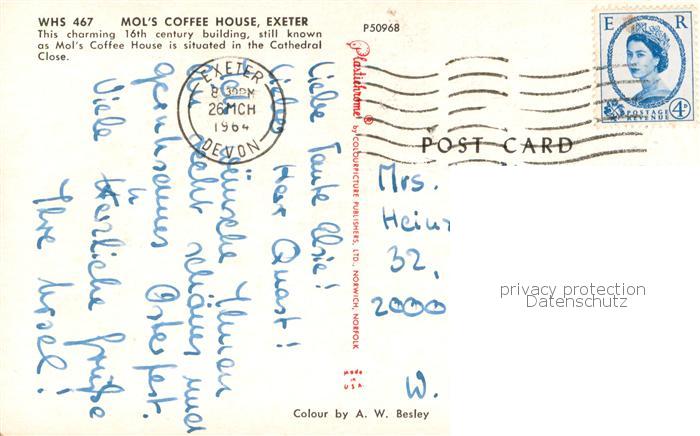 WHS 467 MOL'S COFFEE HOUSE, EXETER
This charming 16th century building, still known
as Mol's Coffee House is situated in the Cathedral
Close.
P50968
E R
POSTAGE
REVENUE
4D
EXETER
8 30PM
26 MCH
1964
DEVON
POST CARD
Liebe Tante Elsie!
Lieber Herr Quast!
wünsche Ihnen
ein recht schönes und
geruhsames Osterfest.
Viele herzliche Grüße
Ihre Ursel!
Plastichrome® by COLOURPICTURE PUBLISHERS, LTD., NORWICH, NORFOLK
Made in
USA
Mrs.
Hein
32,
2000
W.
privacy protection
Datenschutz
Colour by A. W. Besley